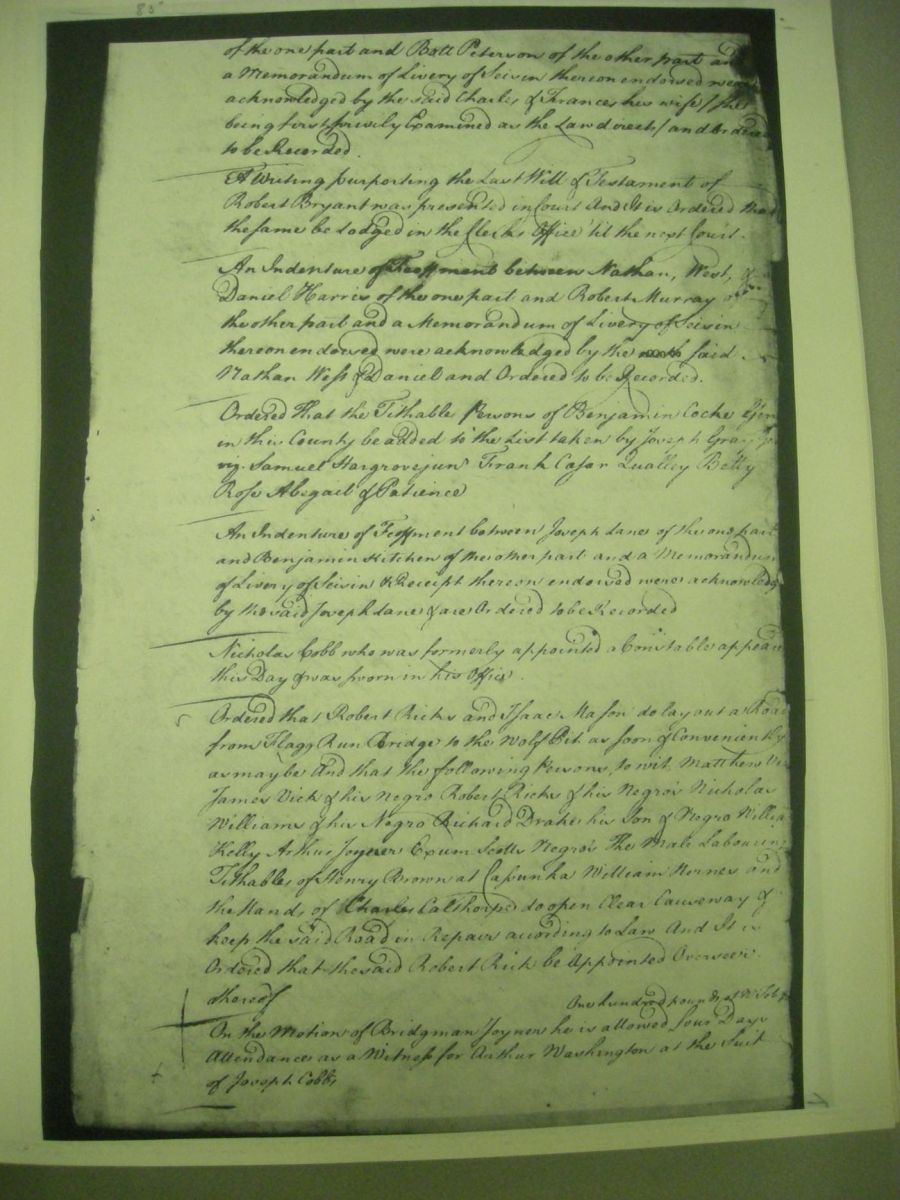 85
of the one part and Batt Peterson of the other part and
a Memorandum of Livery of Seisin thereon endorsed were
acknowledged by the said Charles & Frances his wife / she
being first privily Examined as the Law directs / and Ordered
to be Recorded.
A Writing purporting the Last Will & Testament of
Robert Bryant was presented in Court And It is Ordered that
the same be Lodged in the Clerks Office 'til the next Court.
An Indenture of Feoffment between Nathan, West, &
Daniel Harris of the one part and Robert Murray of
the other part and a Memorandum of Livery of Seisin
thereon endorsed were acknowledged by the said
Nathan West & Daniel and Ordered to be Recorded.
Ordered That the Tithable Persons of Benjamin Cocke
in this County be added to the List taken by Joseph Gray
viz. Samuel Hargrove jun Frank Casar Qualley Betty
Ross Abegail & Patience
An Indenture of Feoffment between Joseph Lane of the one part
and Benjamin Kitchen of the other part and a Memorandum
of Livery of Seisin & Receipt thereon endorsed were acknowledg
by the said Joseph Lane & are Ordered to be Recorded
Nicholas Cobb who was formerly appointed a Constable appear
this Day & was sworn in his Office.
Ordered that Robert Ricks and Isaac Mason do lay out a Road
from Flagg Run Bridge to the Wolf Pit as soon & Conveniently
as may be And that the following Persons, to wit, Matthew
James Vick & his Negro Robert Ricks & his Negro's Nicholas
Williams & his Negro Richard Drake his Son & Negro William
Kelly Arthur Joyner Exum Scotts Negro's The Male Labouring
Tithables of Henry Brown at Capunka William Kerney and
the Hands of Charles Calthorpe do open Clear Causeway &
keep the said Road in Repair according to Law And It is
Ordered that the said Robert Rick be Appointed Overseer
thereof
One hundred pounds of Tob
On the Motion of Bridgman Joyner he is allowed four Days
Attendance as a Witness for Arthur Washington at the Suit
of Joseph Cobb